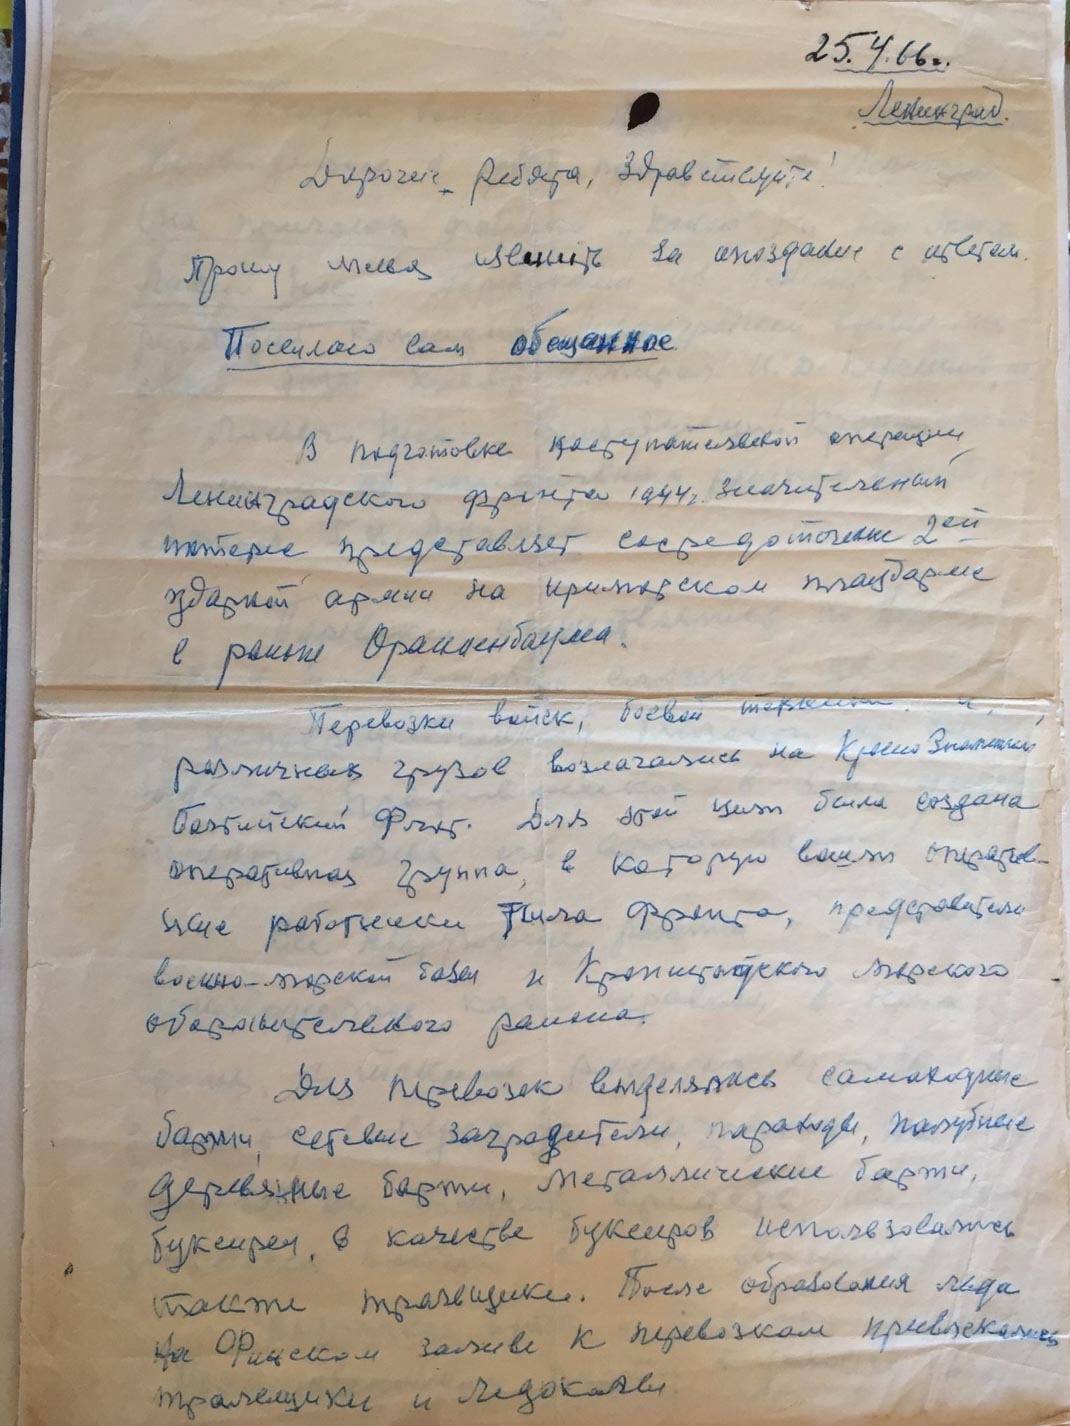 25.4.66г.
Ленинград.
Дорогие ребята, Здравствуйте!
Прошу меня извинить за опоздание с ответом.
Посылаю вам обещанное
В подготовке наступательной операции
Ленинградского фронта 1944г. значительный
интерес представляет сосредоточение 2ой
ударной армии на приморском плацдарме
в районе Ораниенбаума.
Перевозки войск, боевой техники и
различных грузов возлагались на Краснознаменный
Балтийский Флот. Для этой цели была создана
оперативная группа, в которую вошли оператив-
ные работники Тыла фронта, представители
военно-морской базы и Кронштадтского морского
оборонительного района.
Для перевозок выделялись самоходные
баржи, сетевые заградители, пароходы, палубные
деревянные баржи, металлические баржи,
буксиры, в качестве буксиров использовались
также тральщики. После образования льда
на Финском заливе к перевозкам привлекались
тральщики и ледоколы